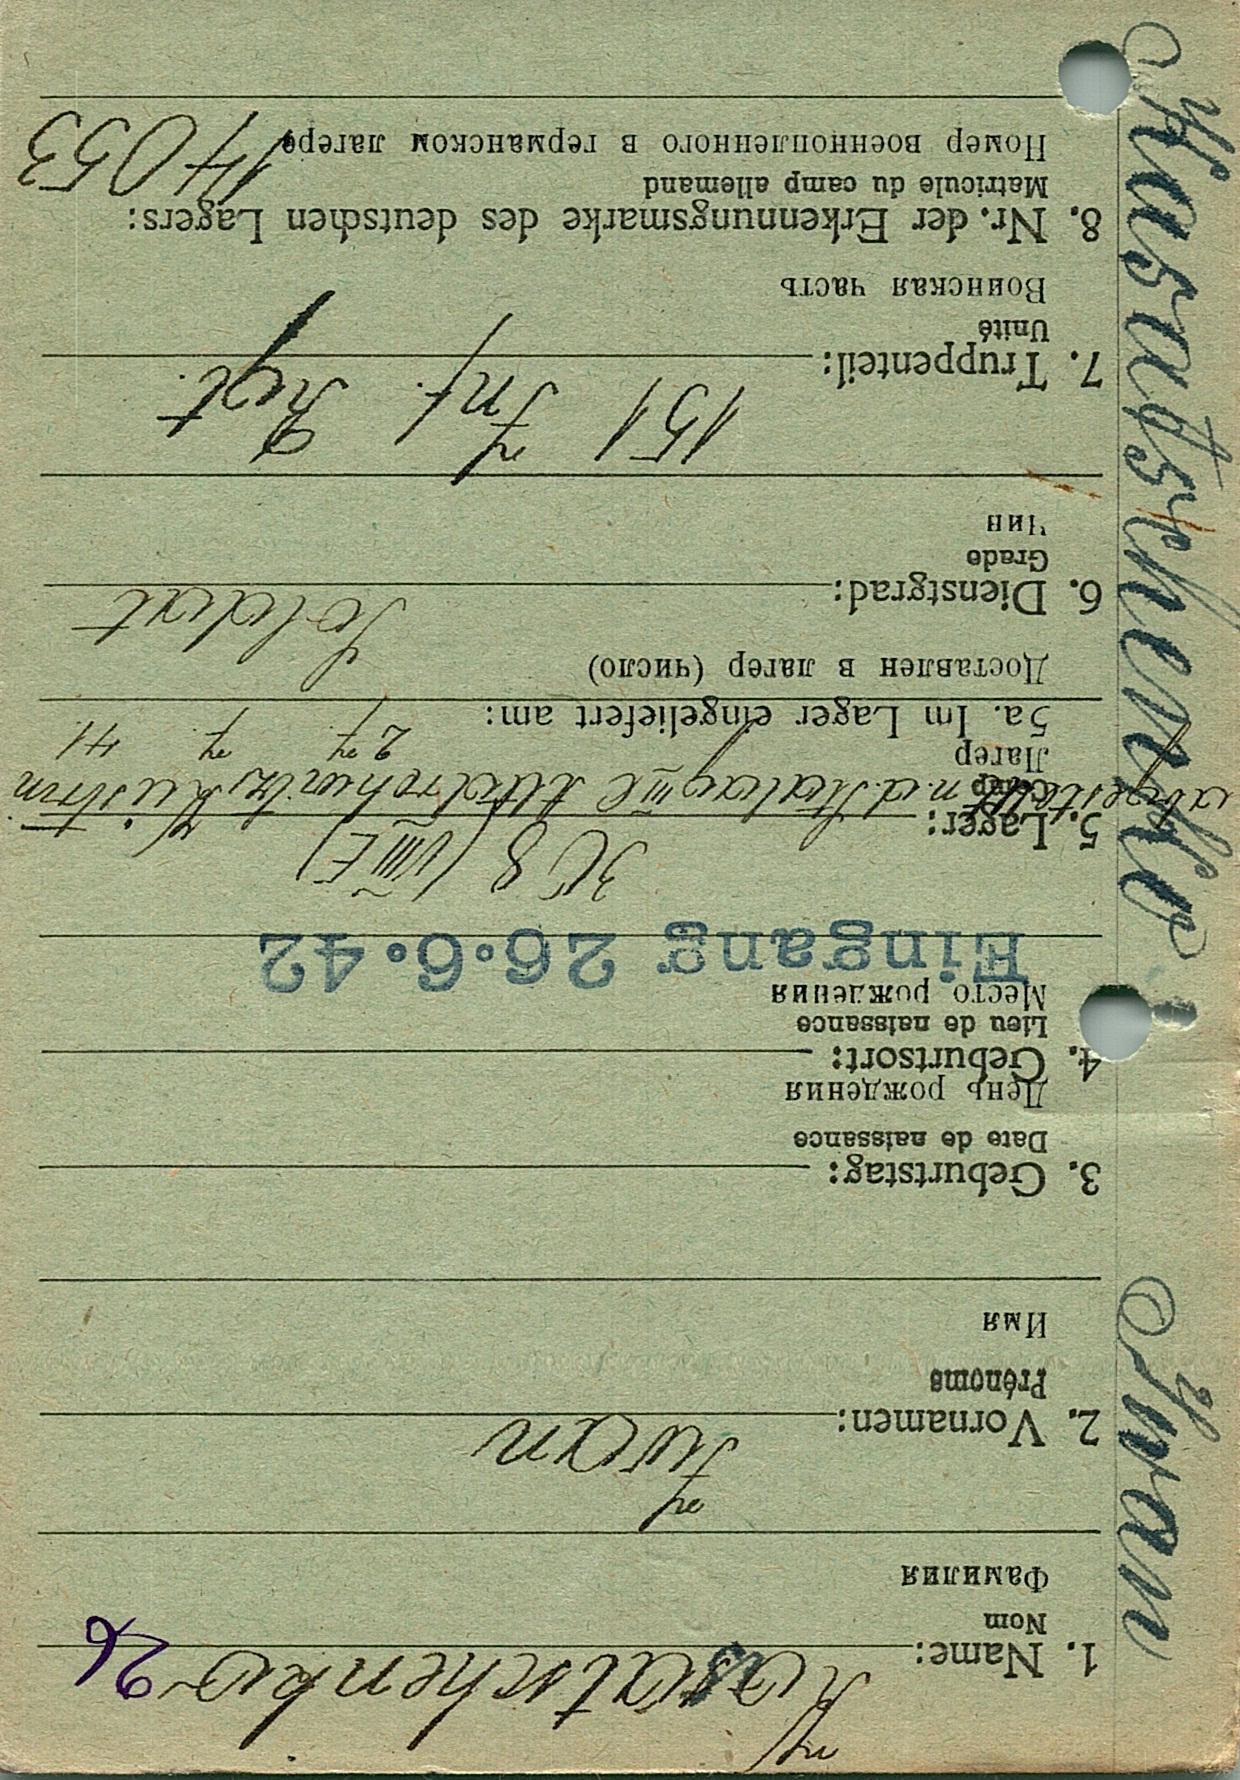 Kasatschenko Iwan
1. Name: Kasatschenko 26
Nom
Фамилия
2. Vornamen: Iwan
Prénoms
Имя
3. Geburtstag:
Date de naissance
День рождения
4. Geburtsort:
Lieu de naissance
Место рождения
Eingang 26.6.42
308 (VIII E)
5. Lager:
n. d. Stalag III C Küstrin
Camp
Лагер
27. 7. 41.
5a. Im Lager eingeliefert am:
Доставлен в лагер (число)
6. Dienstgrad: Soldat
Grade
Чин
151 Inf. Regt.
7. Truppenteil:
Unité
Воинская часть
8. Nr. der Erkennungsmarke des deutschen Lagers:
Matricule du camp allemand 14053
Номер военнопленного в германском лагере